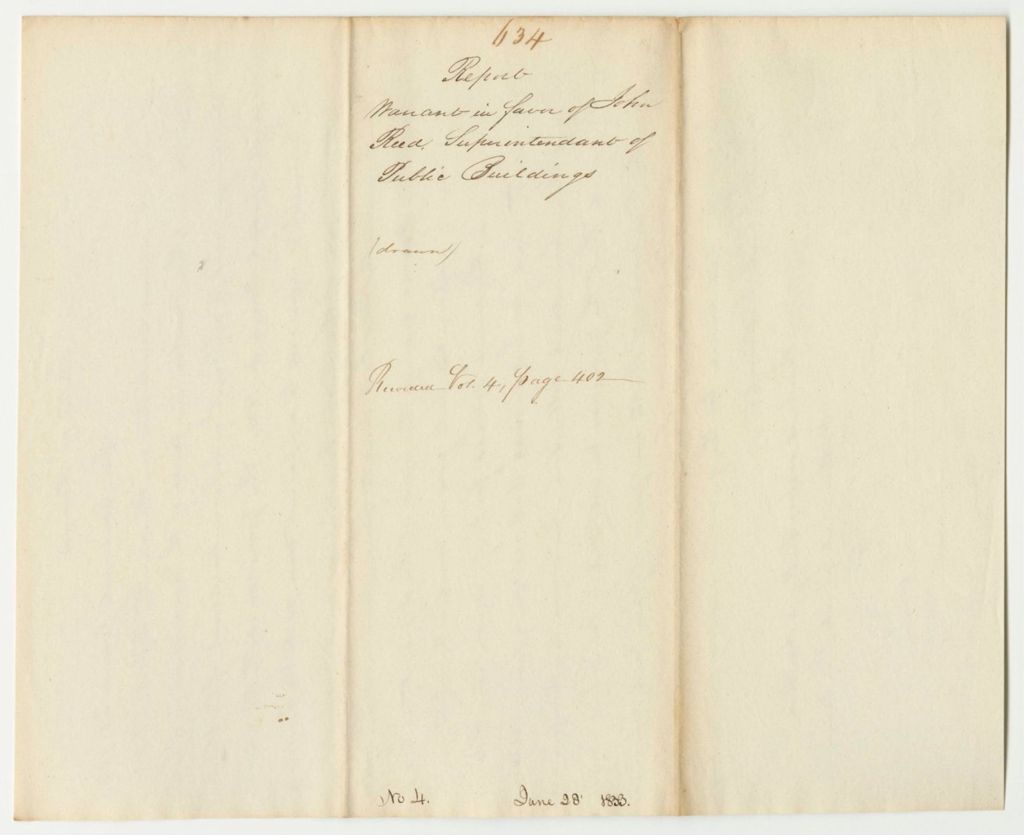 634
Report
Warrant in favor of John
Reed, Superintendant of
Public Buildings
(drawn)
Recorded Vol. 4, page 402
No 4.
June 28 1833.